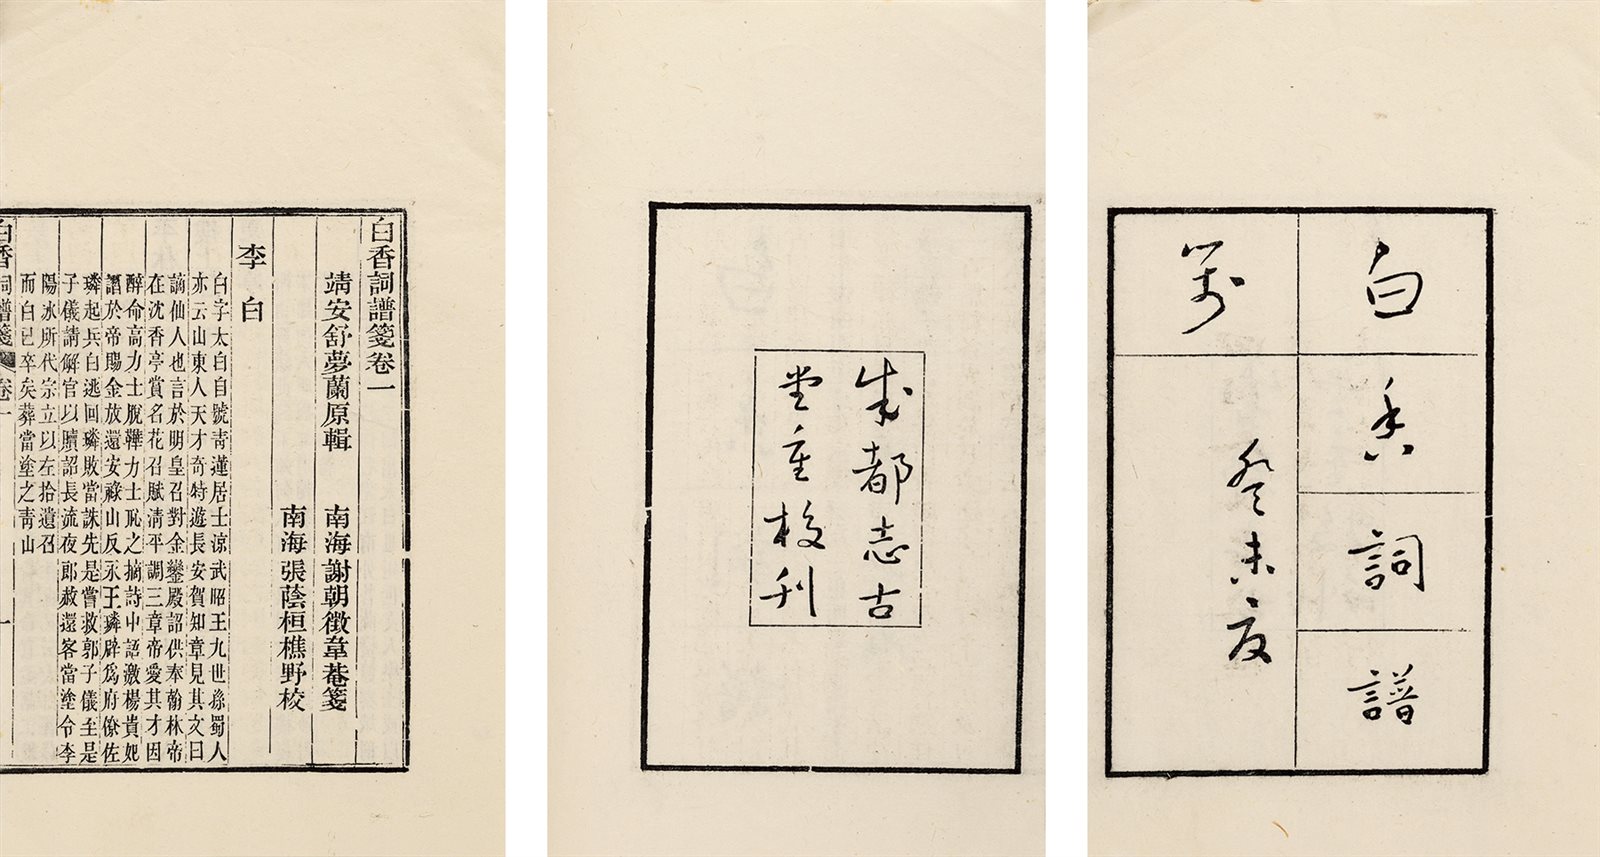 白香詞譜
箋
癸未夏
成都志古
堂重校刊
白香詞譜箋卷一
靖安舒夢蘭原輯　南海謝朝徵韋菴箋
南海張蔭桓樵野校
李白
白字太白自號靑蓮居士涼武昭王九世孫蜀人
亦云山東人天才奇特遊長安賀知章見其文曰
謫仙人也言於明皇召對金鑾殿詔供奉翰林帝
在沈香亭賞名花召賦淸平調三章帝愛其才因
醉命高力士脫鞾力士恥之摘詩中語激楊貴妃
譖於帝賜金放還安祿山反永王璘辟爲府僚佐
璘起兵白逃回璘敗當誅先是嘗救郭子儀至是
子儀請解官以贖詔長流夜郎赦還客當塗令李
陽冰所代宗立以左拾遺召
而白已卒矣葬當塗之靑山
白香詞譜箋　卷一　一